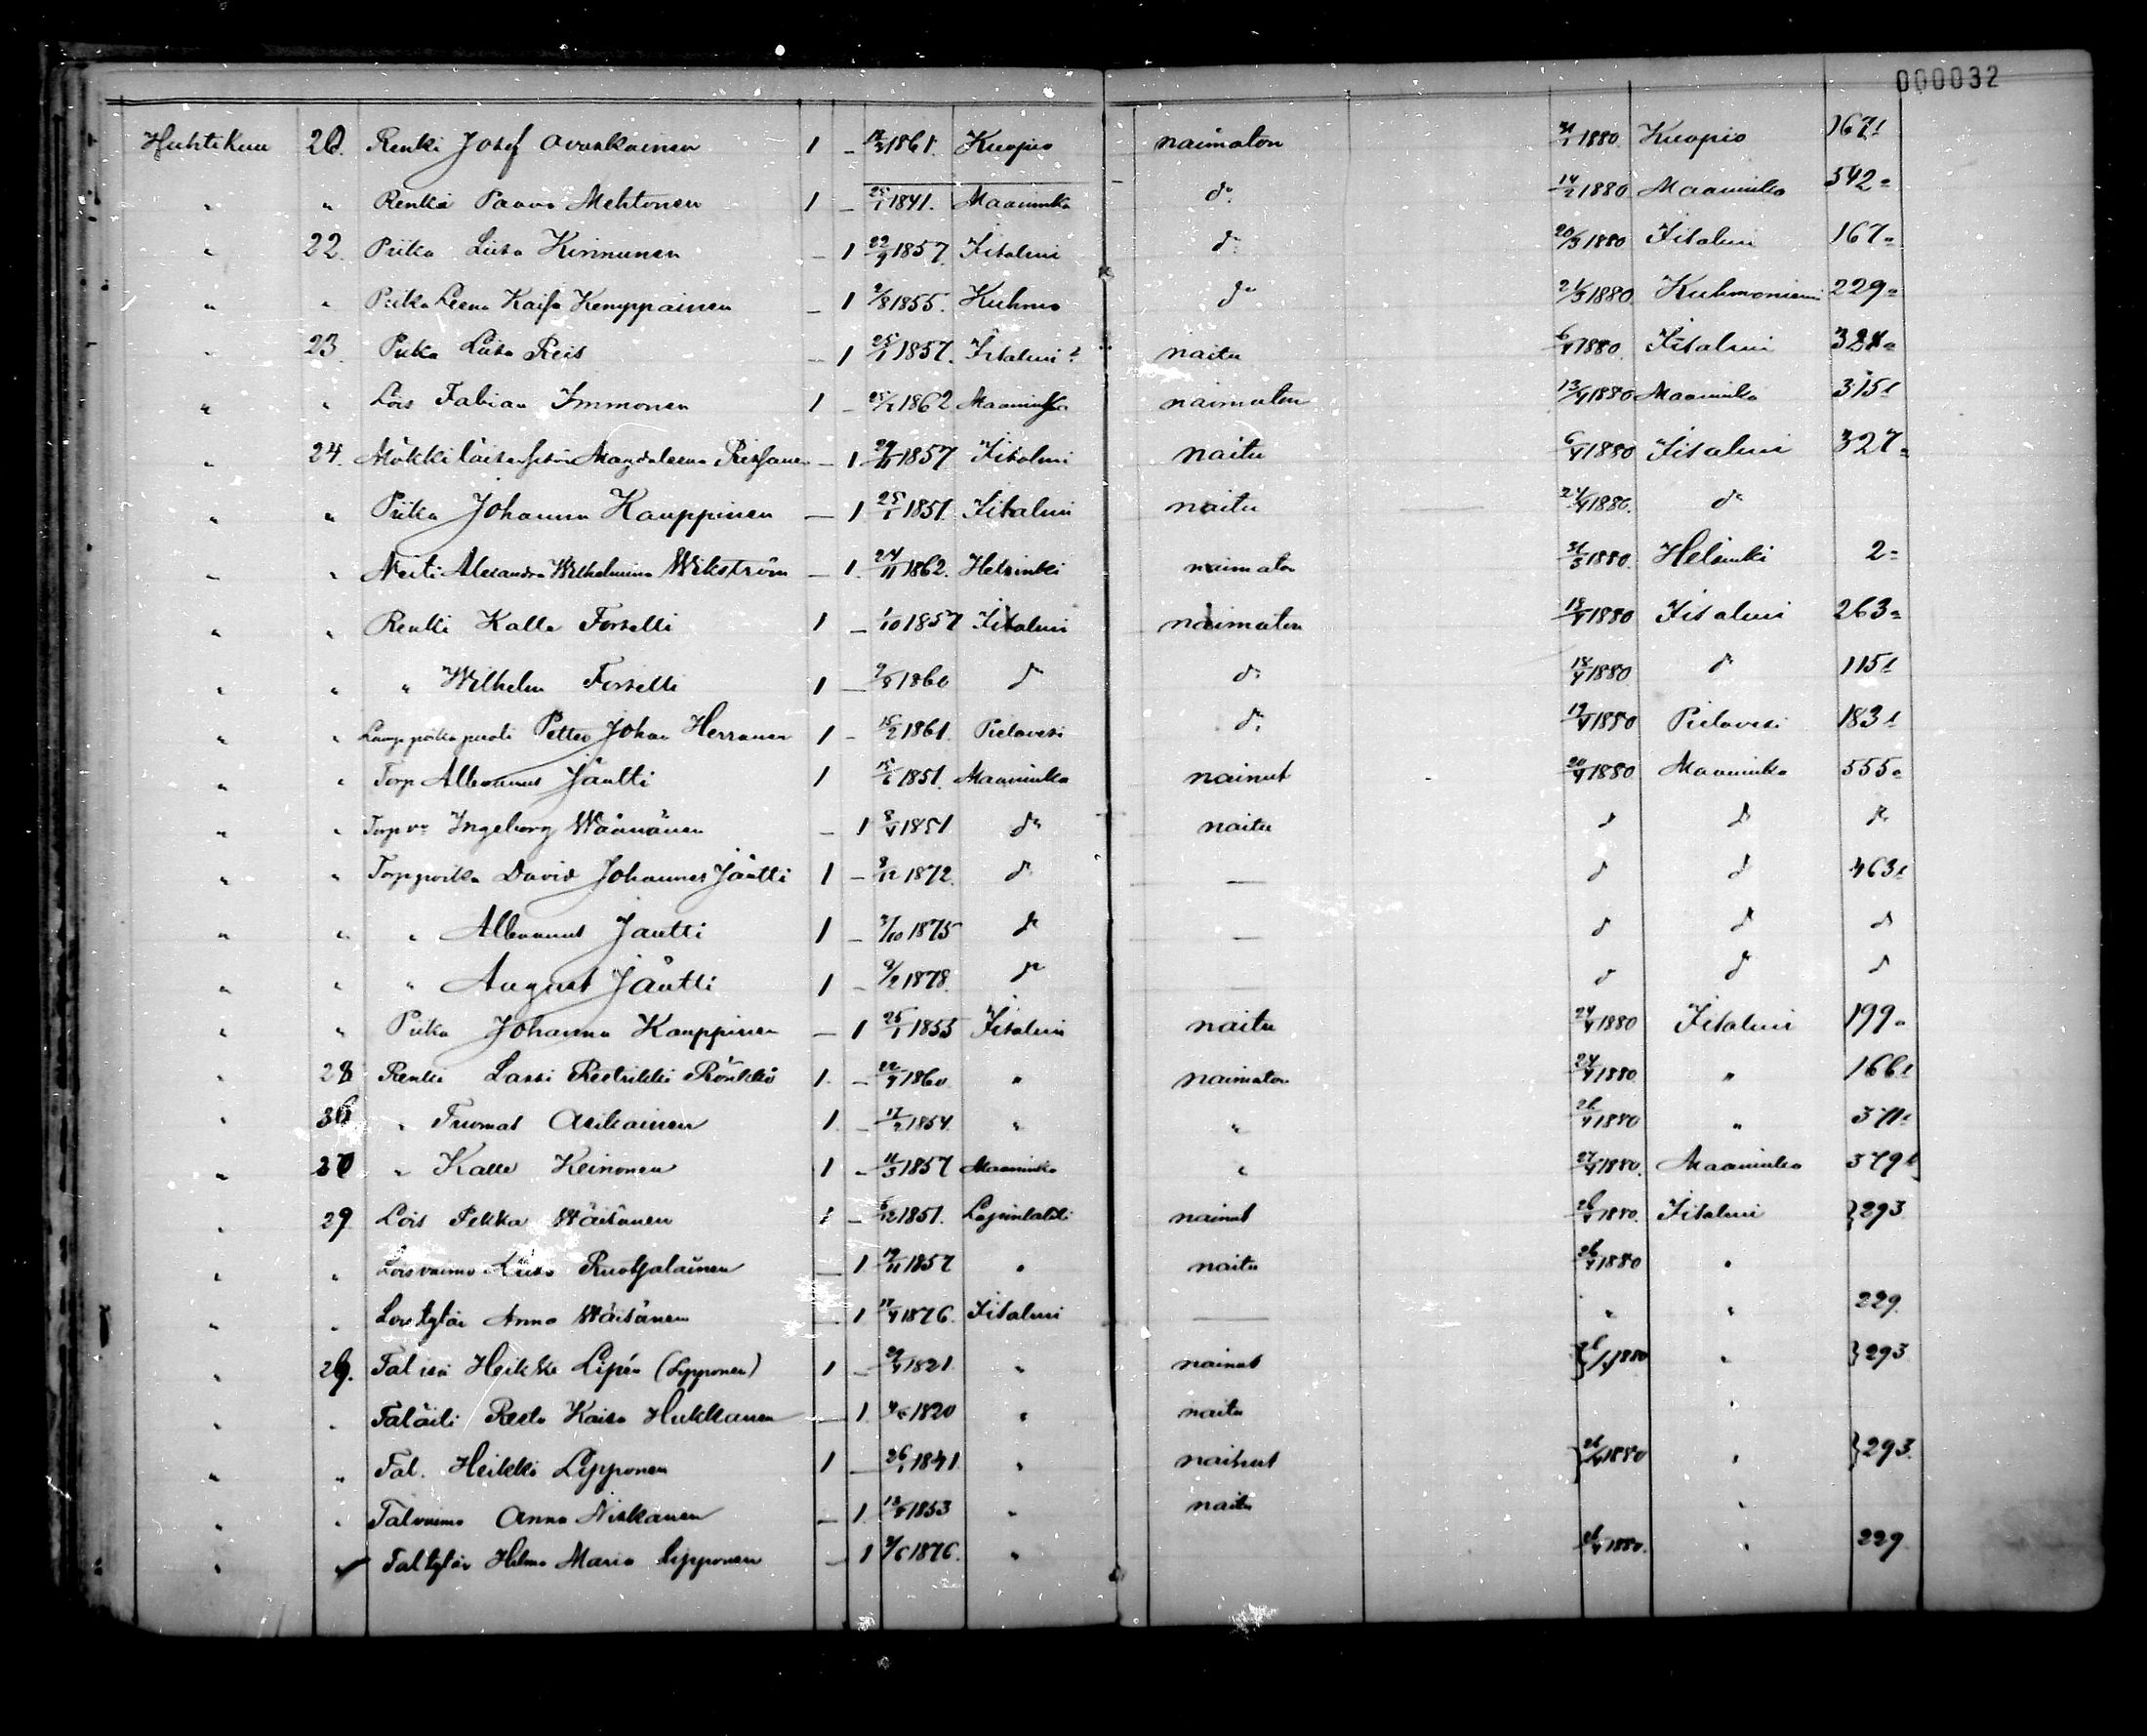 000032
Huhtikuu 20. Renki Josef Avaskainen 1 - 1861. Kuopio naimaton 1880. Kuopio 167
" " Renki Paavo Mehtonen 1 - 25/1 1841. Maaninka do 14/2 1880 Maaninka 342
" 22. Piika Liisa Kinnunen - 1 22/9 1857. Iisalmi do 20/3 1880 Iisalmi 167
" " Piika Leena Kaisa Kemppainen - 1 2/8 1855. Kuhmo do 21/3 1880 Kuhmoniemi 229
" 23. Piika Liisa Reis - 1 25/1 1857. Iisalmi naitu 6/4 1880 Iisalmi
" " Lois Fabian Immonen 1 - 1862 Maaninka naimaton 13/4 1880 Maaninka 315
" 24. Mökkiläisen Magdaleena - 1 1857 Iisalmi naitu 6/4 1880 Iisalmi 327
" " Piika Johanna Kauppinen - 1 25/1 1851. Iisalmi naitu 24/4 1880. do
" " Neiti Alexandra Wilhelmina Wikström - 1. 24/11 1862. Helsinki naimaton 31/3 1880. Helsinki 2
" " Renki Kalle Forselli 1 - 1/10 1857 Iisalmi naimaton 18/4 1880 Iisalmi 263
" " " Wilhelm Forselli 1 - 9/8 1860 do do 18/4 1880 do 115
" " Lamppoika puoli Petter Johan Herranen 1 - 15/2 1861. Pielavesi do 1880 Pielavesi 183
" " Torp Albanus Jäntti 1 1851. Maaninka nainut 20/4 1880 Maaninka 555
" " Torp vo Ingeborg Wäänänen - 1 8/4 1851 do naitu do do do
" " Torppoika David Johannes Jäntti 1 - 8/12 1872. do — do do 463
" " " Albanus Jäntti 1 - 3/10 1875 do — do do do
" " " August Jäntti 1 - 9/2 1878. do — do do do
" " Piika Johanna Kauppinen - 1 25/1 1855 Iisalmi naitu 24/4 1880 Iisalmi 199
" 28 Renki Lassi Reetrikki Rönkkö 1. - 1860. " naimaton 24/4 1880 " 166
" Tuomas Asikainen 1. - 17/2 1854. " " 26/4 1880 " 371
" " Kalle Keinonen 1 - 11/3 1857 Maaninka " 27/4 1880. Maaninka 379
" 29. Lois Pekka Wäisänen 1 - 6/12 1851. Lapinlahti nainut 26/4 1880. Iisalmi } 293
" " Loisvaimo Liisa Ruotsalainen - 1 19/11 1857 " naitu 26/4 1880 "
" " Loistytär Anna Wäisänen - 1 17/4 1876. Iisalmi — " " 229.
" 29. Tal isä Heikki Lipén (Lipponen) 1 - 29/4 1821. " nainut 1880 " } 293
" " Taläiti Reeta Kaisa Hukkanen - 1. 1820 " naitu "
" " Tal. Heikki Lipponen 1 - 26/1 1841. " nainut 26/4 1880 " } 293.
" " Talvaimo Anna Niskanen - 1. 1853 " naitu "
" " Taltytär Hilma Maria Lipponen - 1 1876. " 26/4 1880. " 229